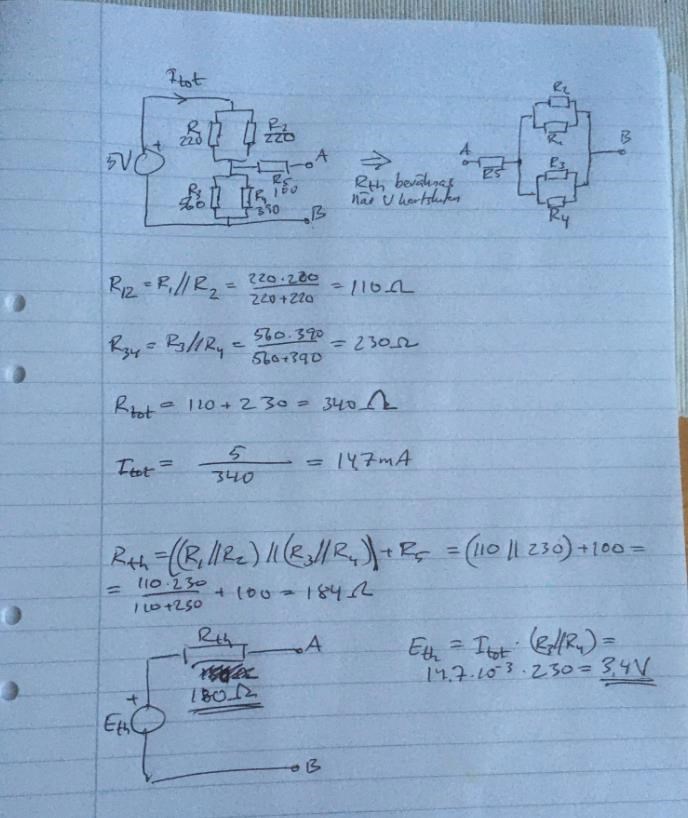 Itot
R 220
R2 220
5V
+
A
R5 100
R3 560
R4 390
B
⇒
Rth beräknas
när U kortsluten
A
R5
R2
R1
R3
R4
B
R12 = R1//R2 = 220·220 / 220+220 = 110Ω
R34 = R3//R4 = 560·390 / 560+390 = 230Ω
Rtot = 110 + 230 = 340 Ω
Itot = 5 / 340 = 14,7mA
Rth = ((R1//R2) // (R3//R4)) + R5 = (110 || 230) + 100 =
= 110·230 / 110+230 + 100 = 184 Ω
Rth
A
180Ω
+
Eth
B
Eth = Itot · (R3//R4) =
14,7·10⁻³ · 230 = 3,4V